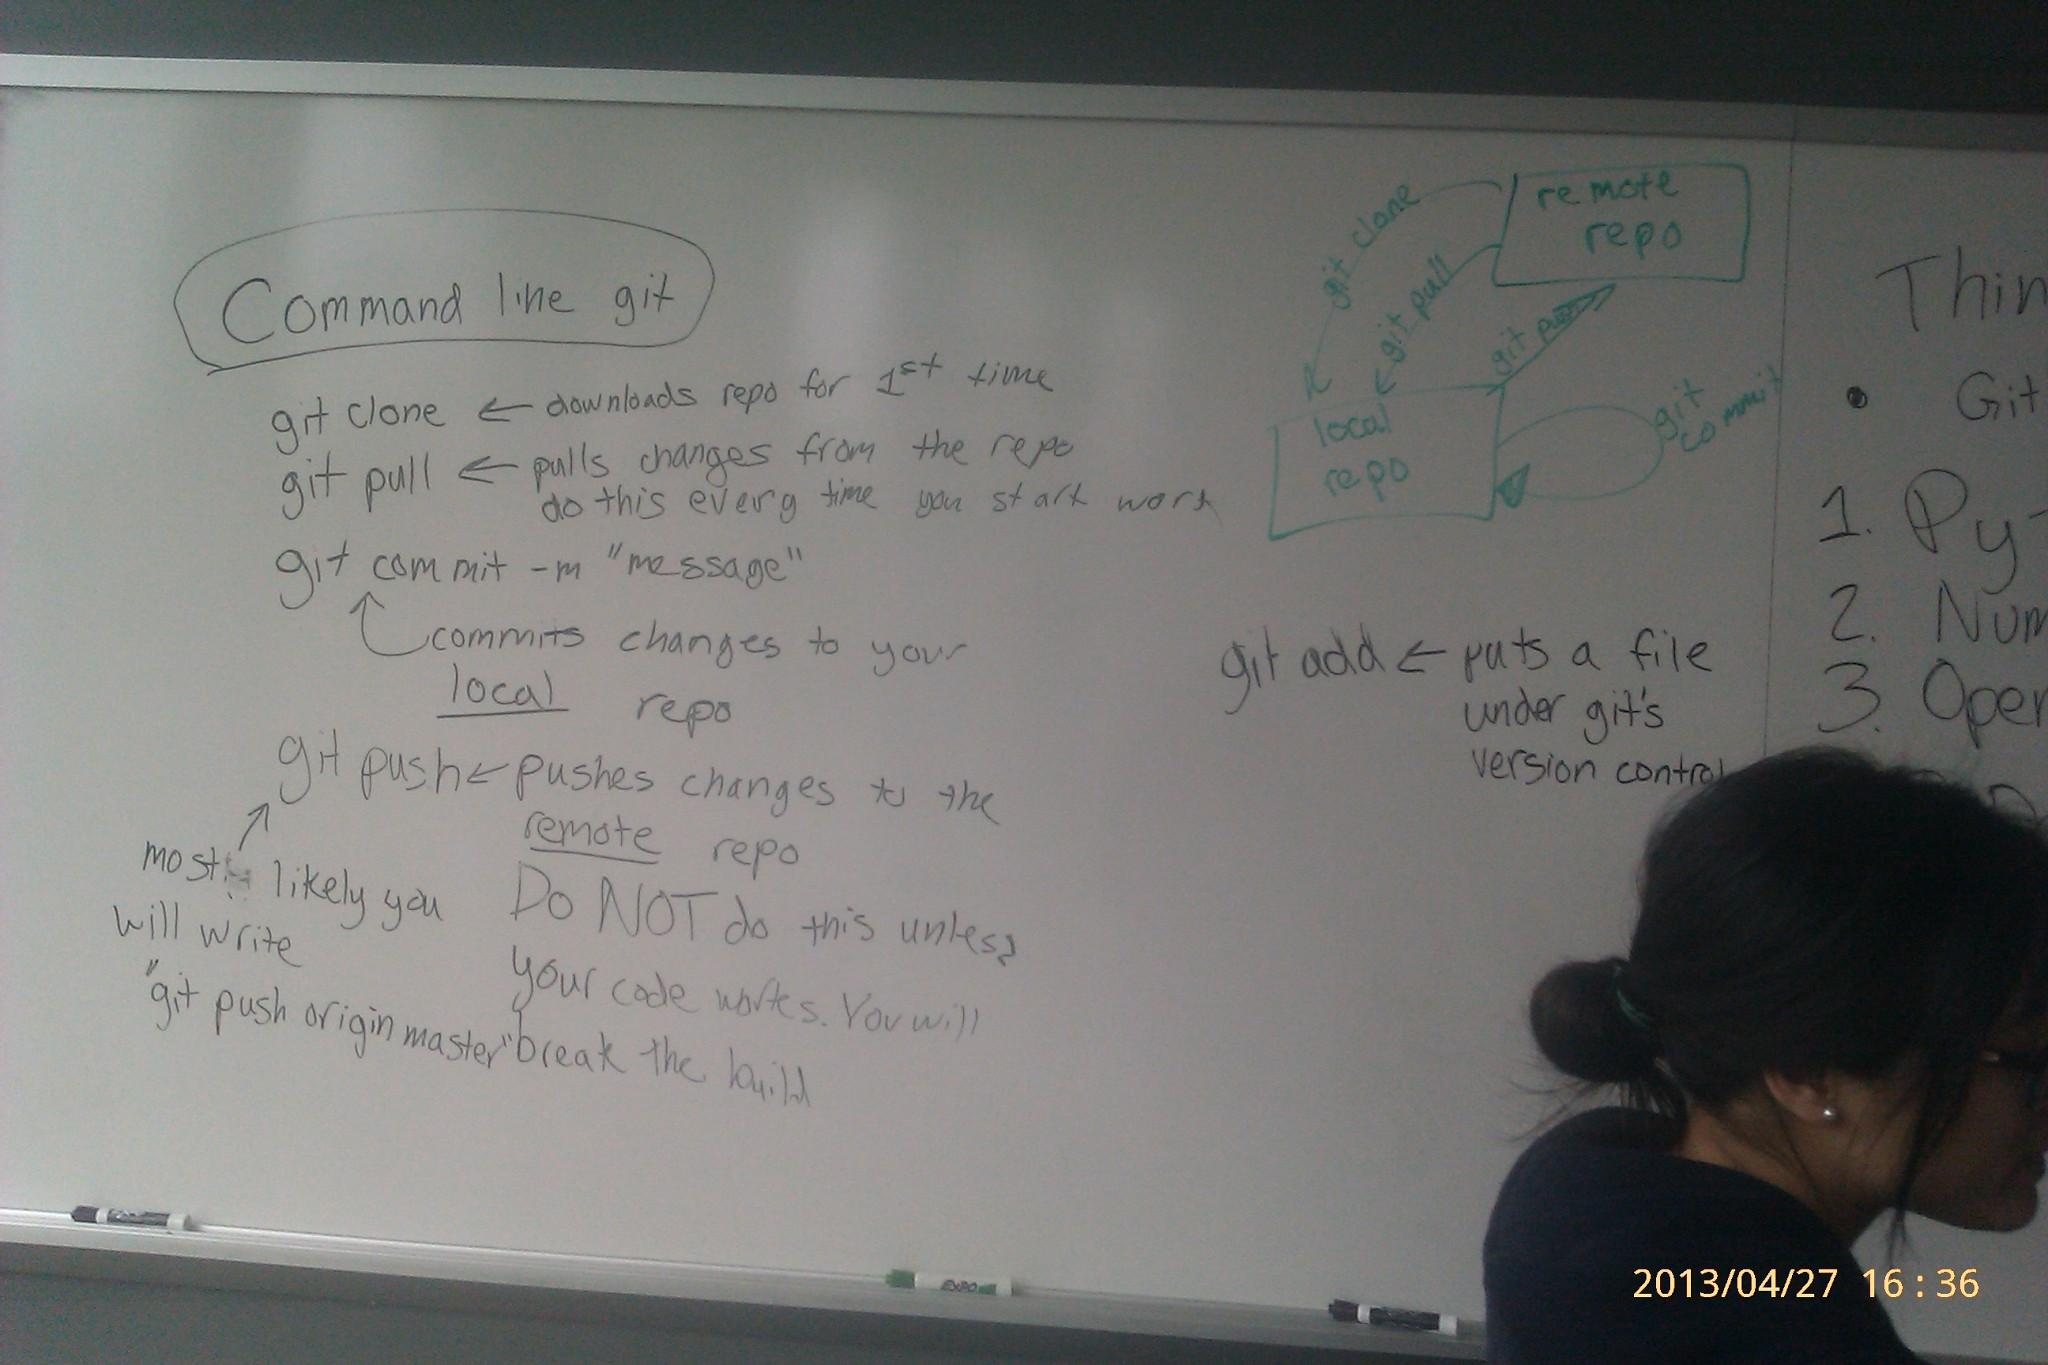 Command line git
git clone ← downloads repo for 1st time
git pull ← pulls changes from the repo
do this every time you start work
git commit -m "message"
commits changes to your
local repo
git push ← pushes changes to the
remote repo
Do NOT do this unless
your code works. You will
break the build
most likely you
will write
"git push origin master"
remote
repo
git clone
git pull
git push
local
repo
git
commit
git add ← puts a file
under git's
version control
Thin
• Git
1. Py
2. Num
3. Oper
EXPO
2013/04/27 16:36